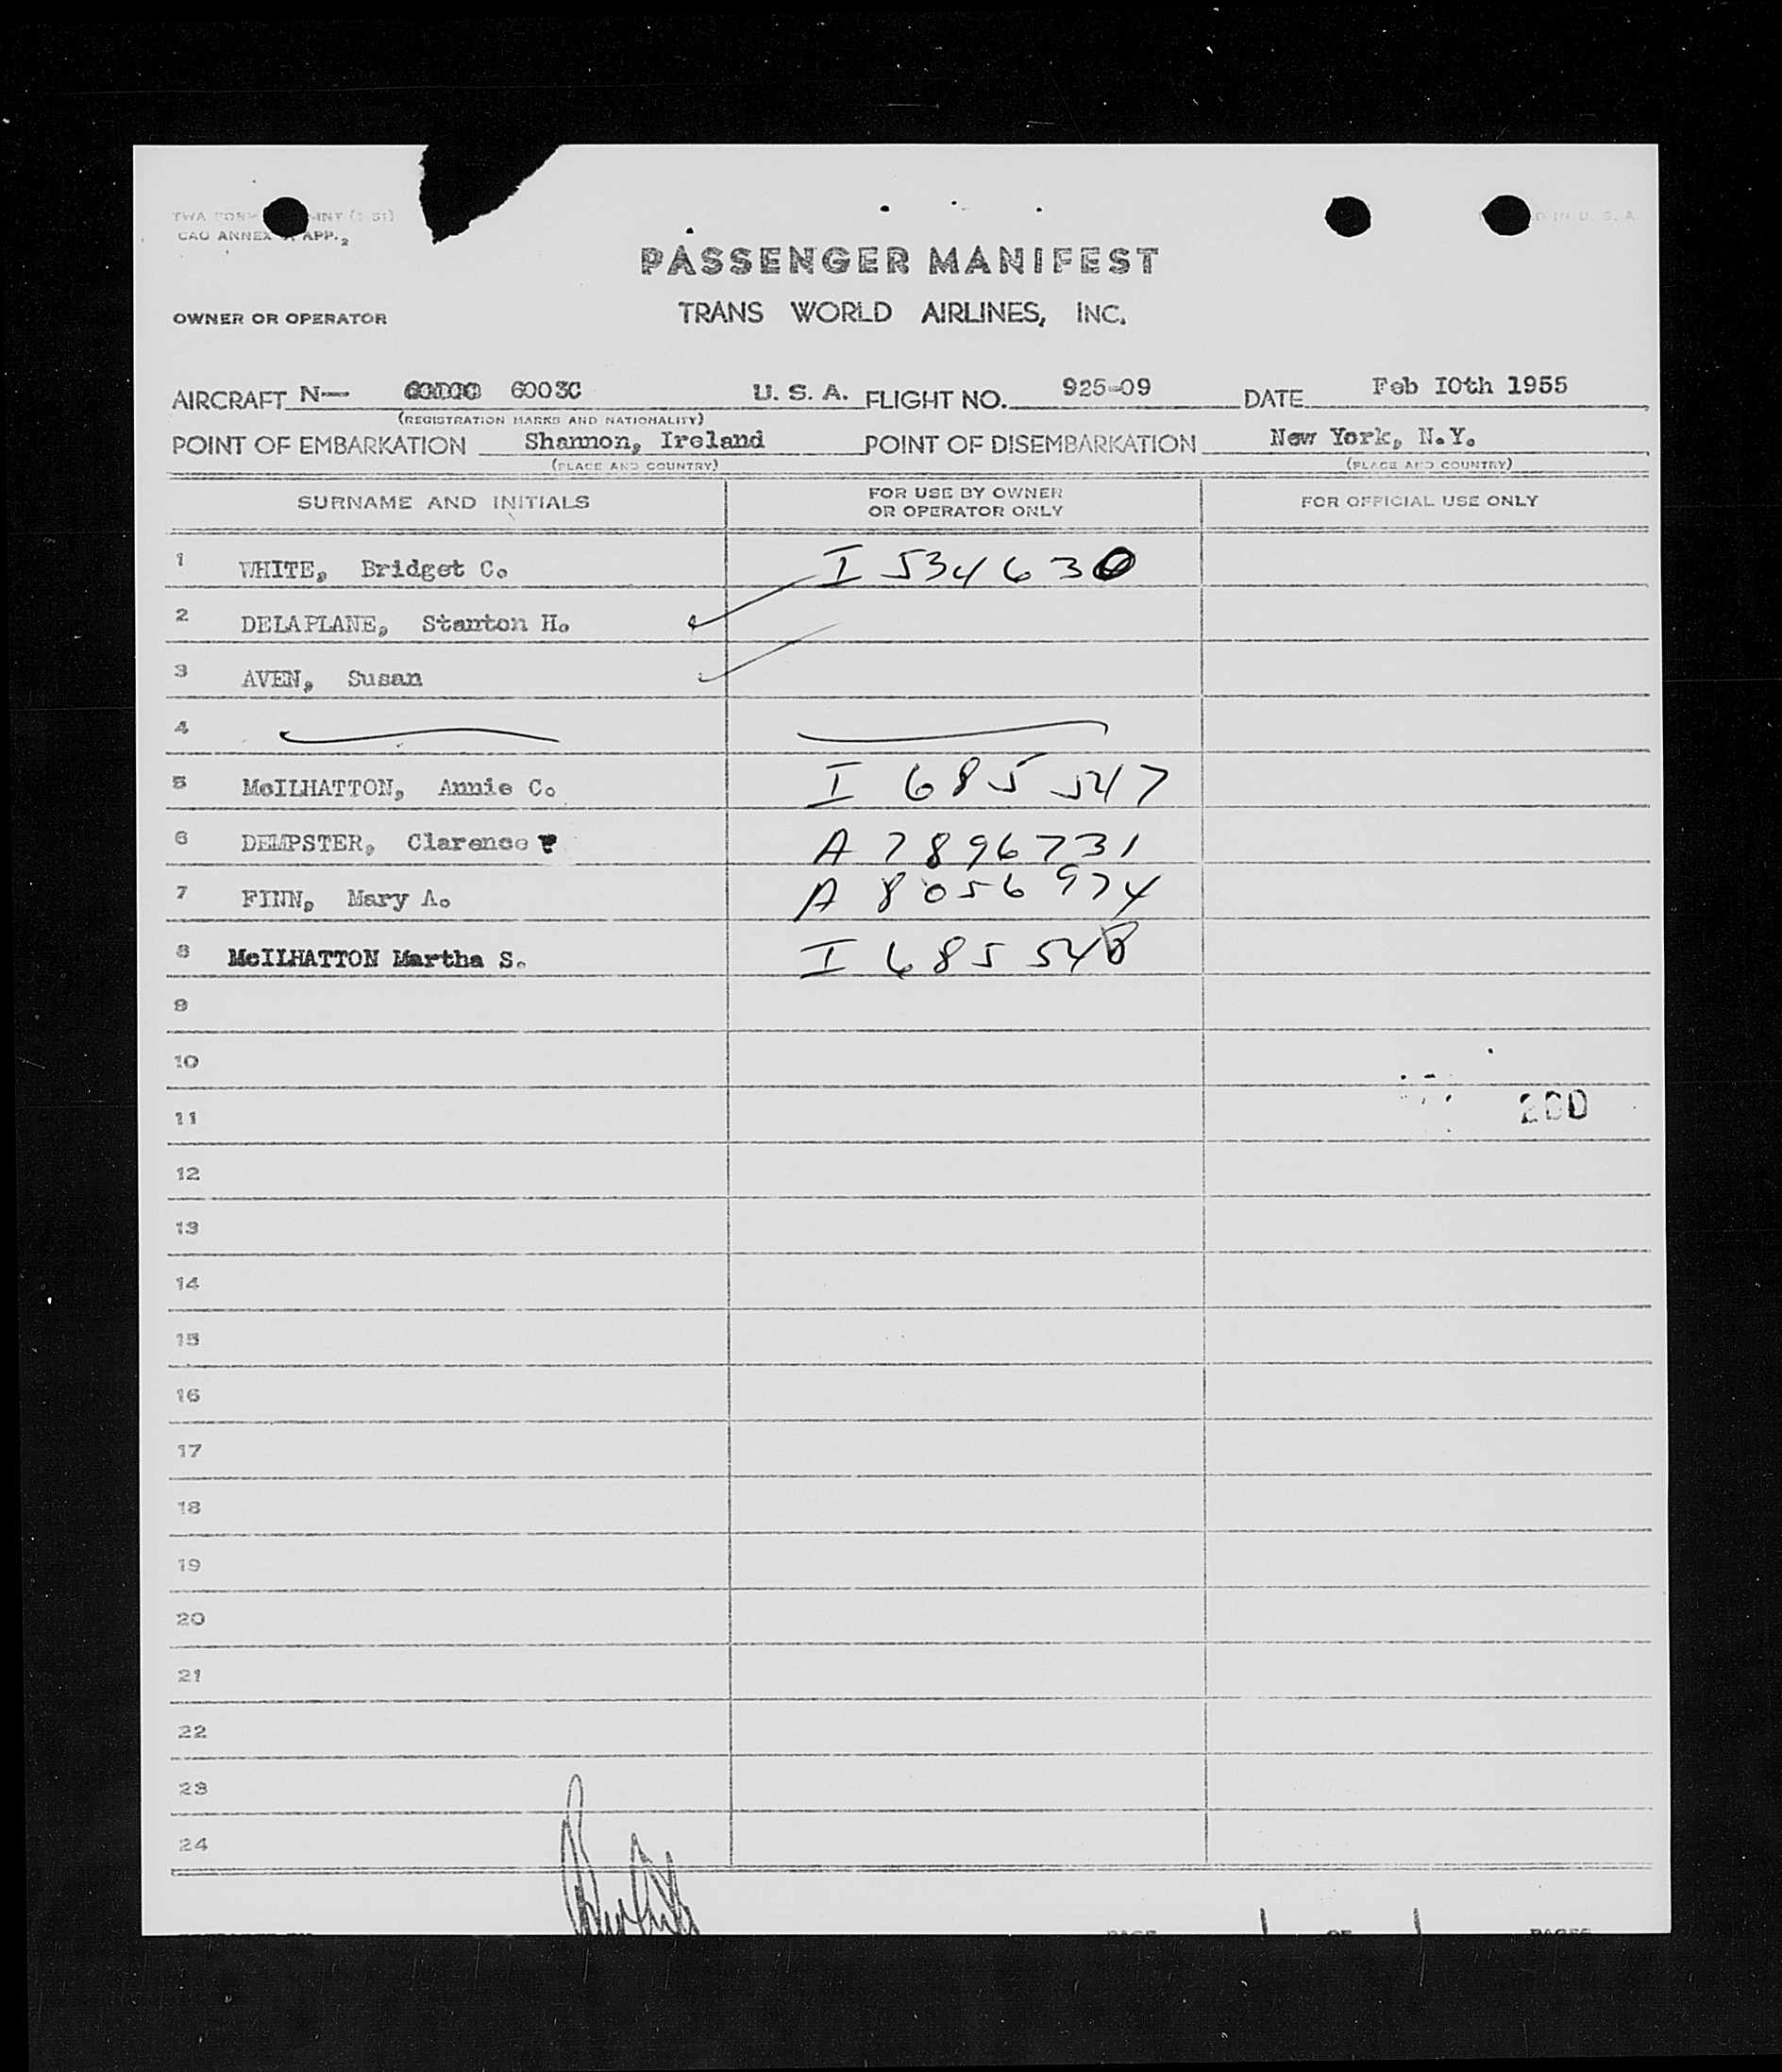 CAO ANNEX APP. 2
PASSENGER MANIFEST
OWNER OR OPERATOR
TRANS WORLD AIRLINES, INC.
AIRCRAFT N— 6003C U. S. A. FLIGHT NO. 925-09 DATE Feb I0th 1955
(REGISTRATION MARKS AND NATIONALITY)
POINT OF EMBARKATION Shannon, Ireland POINT OF DISEMBARKATION New York, N.Y.
(PLACE AND COUNTRY) (PLACE AND COUNTRY)
SURNAME AND INITIALS FOR USE BY OWNER OR OPERATOR ONLY FOR OFFICIAL USE ONLY
1 WHITE, Bridget C. I 534630
2 DELAPLANE, Stanton H.
3 AVEN, Susan
4
5 McILHATTON, Annie C. I 685 547
6 DEMPSTER, Clarence A 7896731
7 FINN, Mary A. A 8056974
8 McILHATTON Martha S. I 685 548
9
10
11 200
12
13
14
15
16
17
18
19
20
21
22
23
24
PAGE 1 OF 1 PAGES